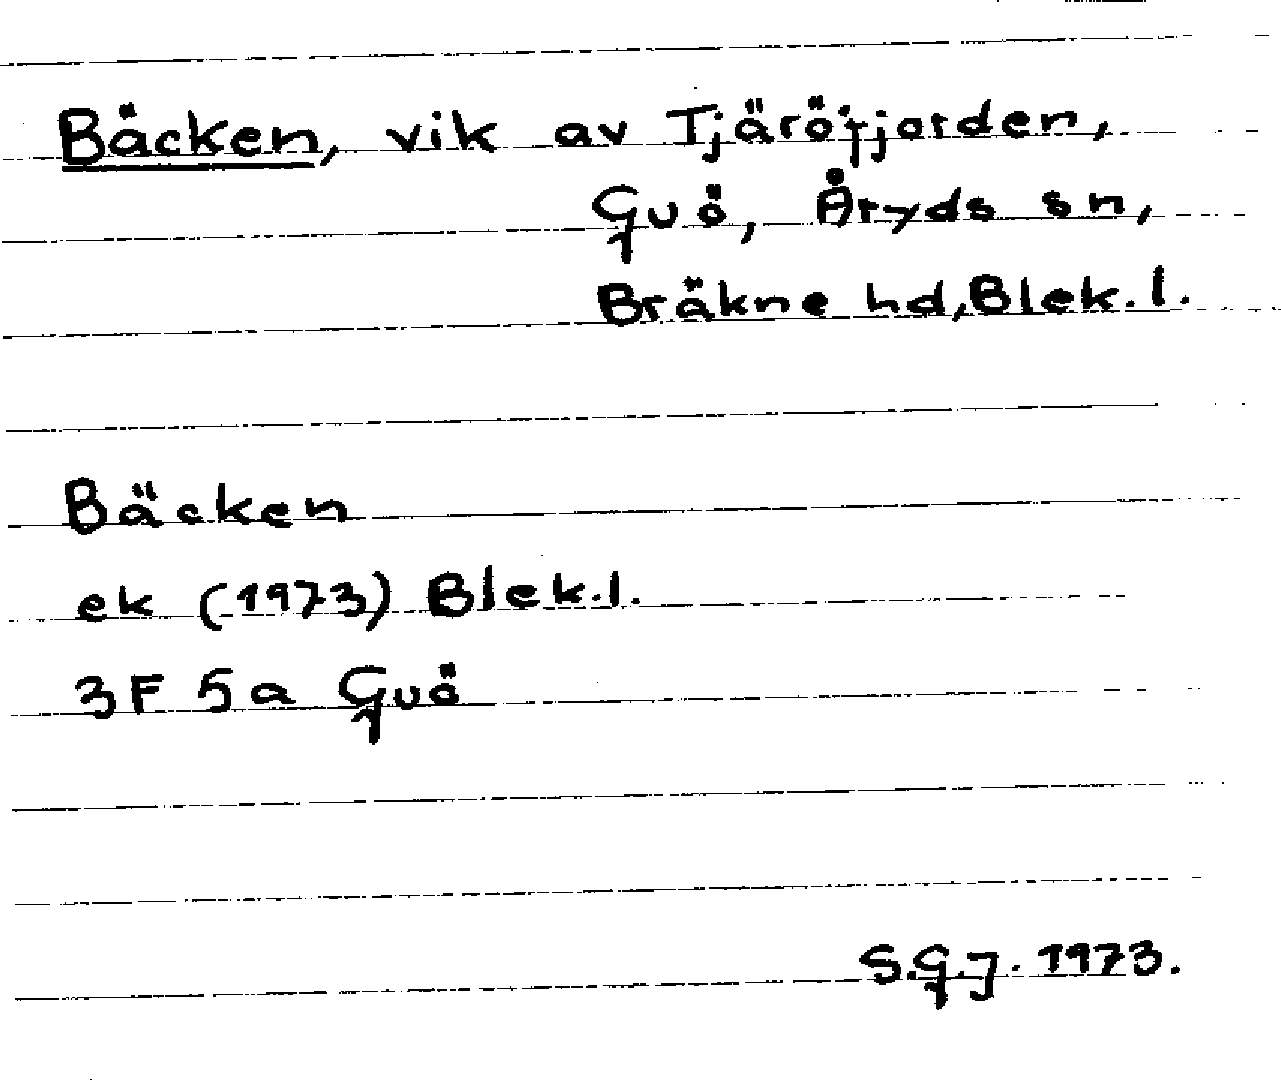 Bäcken, vik av Tjäröfjorden,
Guö, Åryds sn,
Bräkne hd, Blek. l.
Bäcken
ek (1973) Blek. l.
3F 5a Guö
S.G.J. 1973.